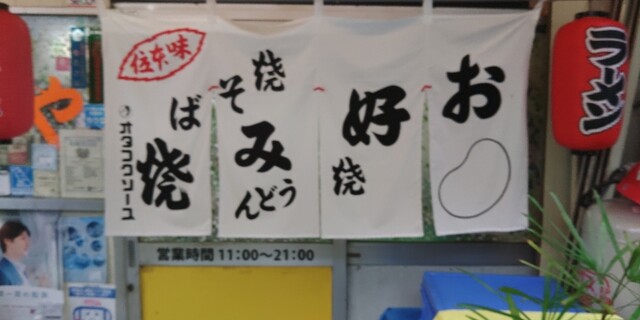 お好み焼
焼そば
焼うどん
味本位
オタフクソース
ラーメン
営業時間 11:00～21:00
や